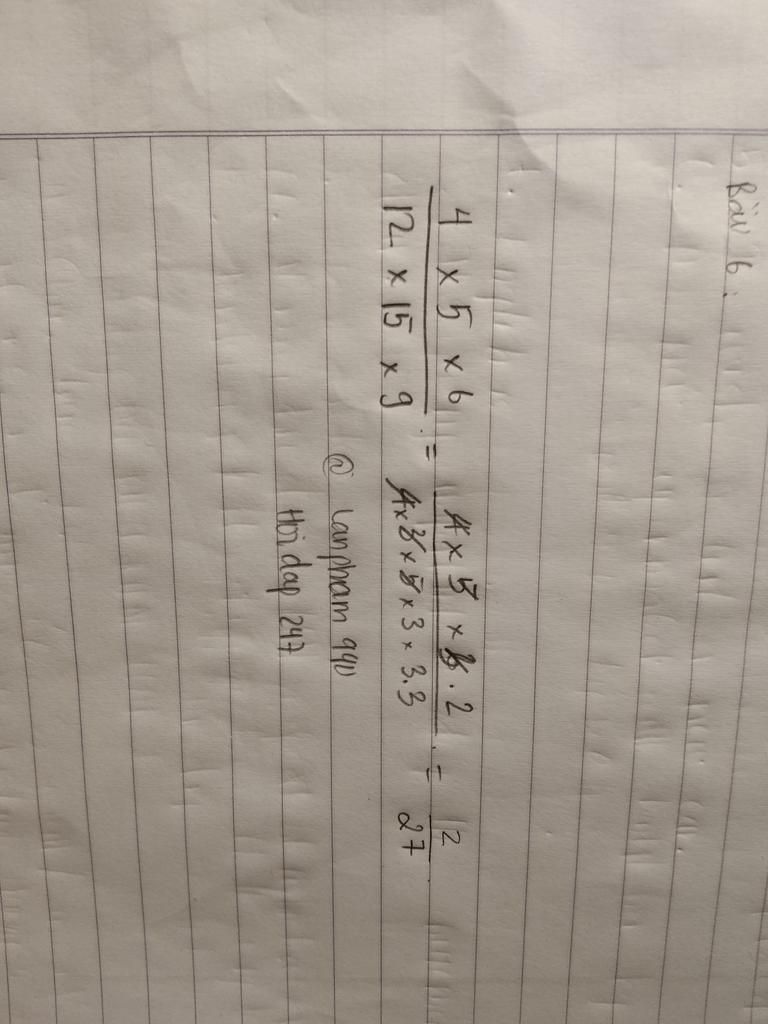 Bài 16:
4 × 5 × 6 / 12 × 15 × 9 = 4 × 5 × 3 . 2 / 4 × 3 × 5 × 3 × 3.3 = 2 / 27
@ lanpham 940
Hỏi đap 247